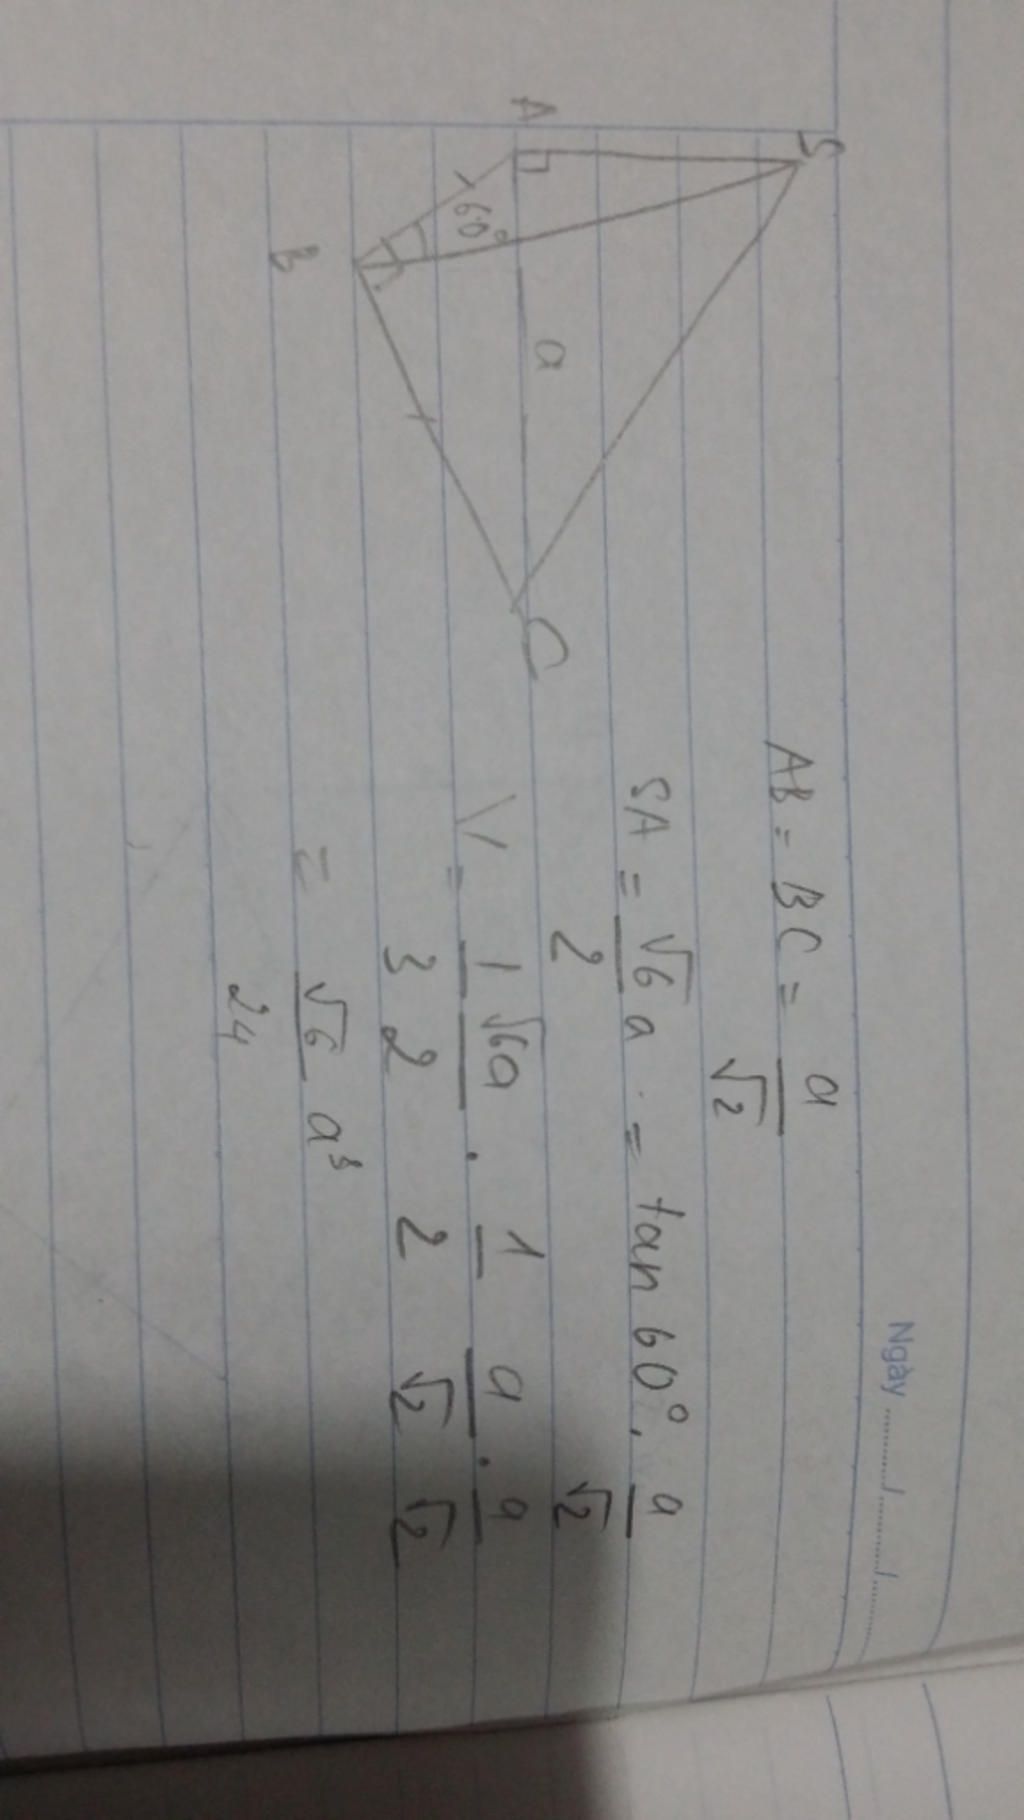 Ngày ......../......../........
S
A
60°
a
B
C
AB = BC = a/√2
SA = √6/2 a = tan 60° . a/√2
V = 1/3 √6a/2 . 1/2 a/√2 . a/√2
= √6/24 a³